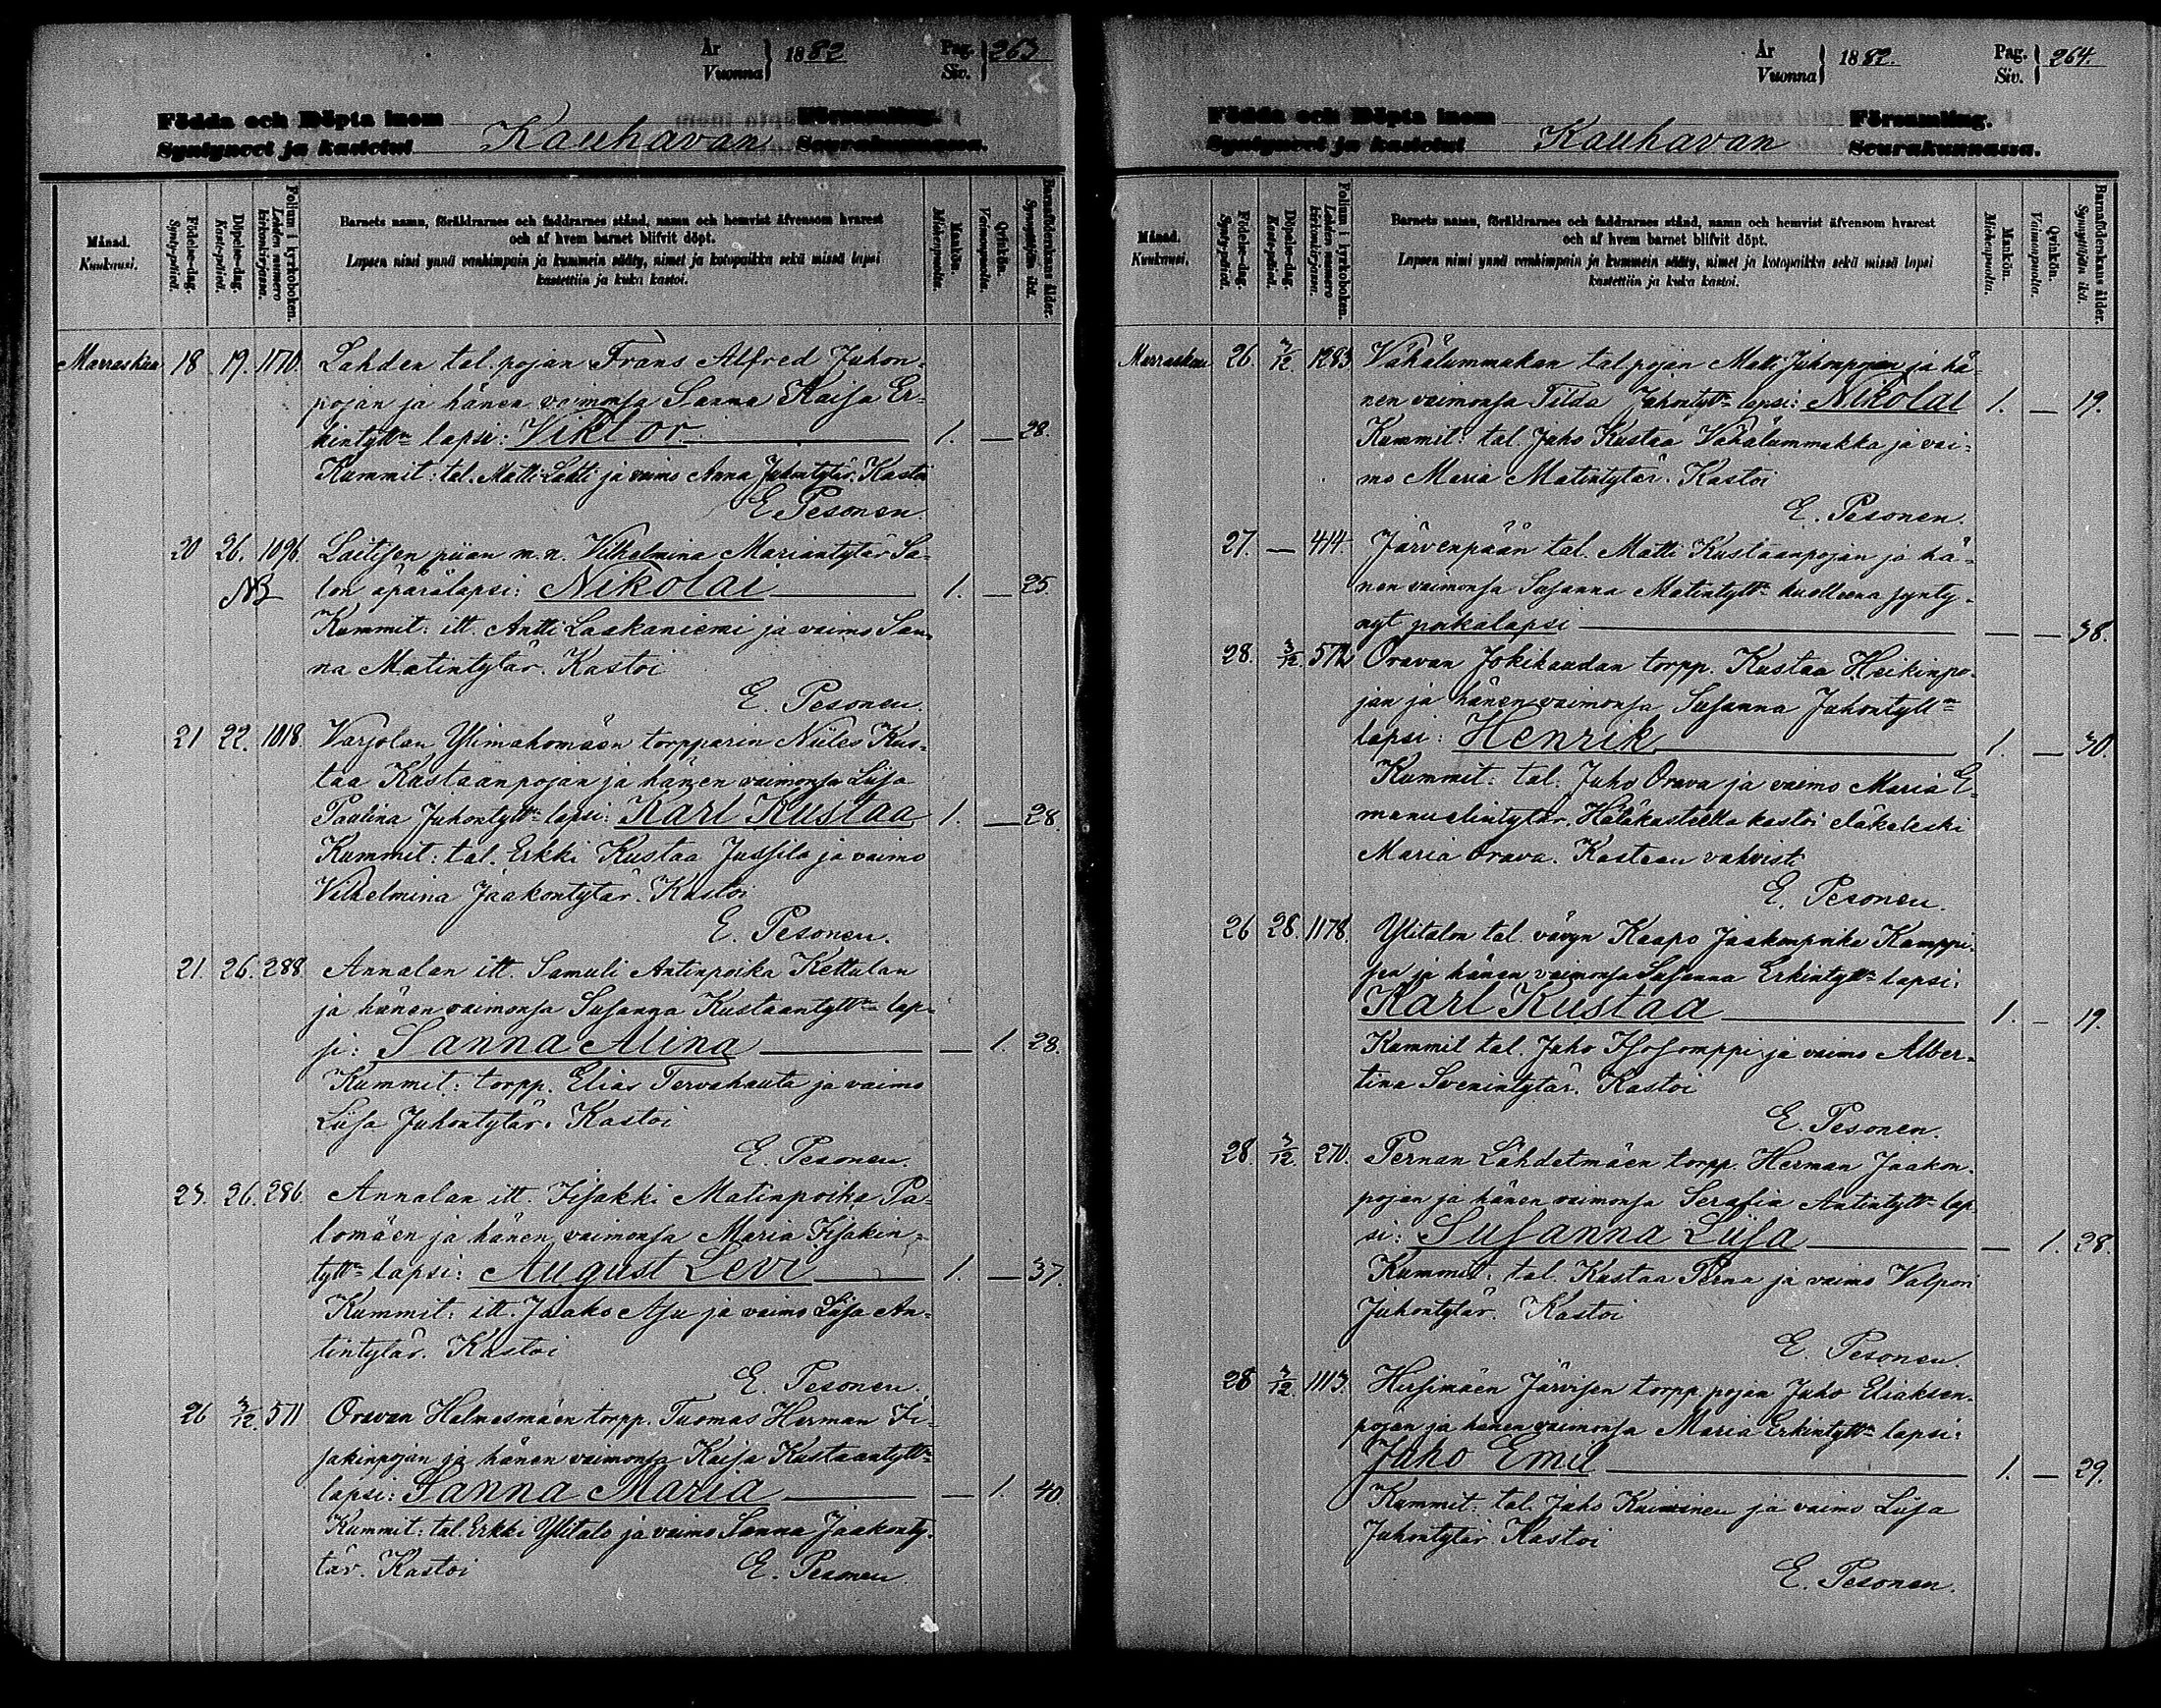 År
Vuonna } 1882
Pag.
Siv. } 263
Födda och Döpta inom Församling.
Syntyneet ja kastetut Kauhavan Seurakunnassa.
Månad. Kuukausi.
Födelse-dag. Syntypäivä.
Döpelse-dag. Kastepäivä.
Folium i kyrkoboken. Lehden numero kirkonkirjassa.
Barnets namn, föräldrarnes och faddrarnes stånd, namn och hemvist äfvensom hvarest
och af hvem barnet blifvit döpt.
Lapsen nimi ynnä vanhimpain ja kummein sääty, nimet ja kotopaikka sekä missä lapsi
kastettiin ja kuka kastoi.
Mankön. Miehenpuolia.
Qvinkön. Vaimonpuolia.
Barnaföderskans ålder. Synnyttäjän ikä.
Marraskuu 18 19. 1170. Lahden tal. pojan Frans Alfred Juhon-
pojan ja hänen vaimonsa Sanna Kaisa Er-
kintytt= lapsi: Viktor 1. — 28.
Kummit: tal. Matti Lahti ja vaimo Anna Juhontytär. Kastoi
E. Pesonen.
20 26. 1096. Laitisen piian m.n. Vilhelmina Mariantytär Sa-
NB lon äpärälapsi: Nikolai 1. — 25.
Kummit: itt. Antti Laskaniemi ja vaimo San-
na Matintytär. Kastoi
E. Pesonen.
21 22. 1018. Varjolan Ylimahomäen torpparin Niiles Kus-
taa Kustaanpojan ja hänen vaimonsa Liisa
Paulina Juhontytt= lapsi: Karl Kustaa 1. — 28.
Kummit: tal. Erkki Kustaa Jussila ja vaimo
Vilhelmina Jaakontytär. Kastoi
E. Pesonen.
21. 26. 288. Annalan itt. Samuli Antinpoika Kettulan
ja hänen vaimonsa Susanna Kustaantytt= lap-
si: Sanna Alina — 1. 28.
Kummit: torpp. Elias Tervahauta ja vaimo
Liisa Juhontytär. Kastoi
E. Pesonen.
23. 26. 286. Annalan itt. Iisakki Matinpoika Pa-
lomäen ja hänen vaimonsa Maria Iisakin-
tytt= lapsi: August Levi 1. — 37.
Kummit: itt. Jaako Asu ja vaimo Liisa An-
tintytär. Kastoi
E. Pesonen.
26 3/12. 571 Oravan Halmesmäen torpp. Tuomas Herman Ii-
sakinpojan ja hänen vaimonsa Kaisa Kustaantytt=
lapsi: Sanna Maria — 1. 40.
Kummit: tal. Erkki Ylitalo ja vaimo Sanna Jaakonty-
tär. Kastoi E. Pesonen.
År
Vuonna } 1882.
Pag.
Siv. } 264.
Födda och Döpta inom Församling.
Syntyneet ja kastetut Kauhavan Seurakunnassa.
Månad. Kuukausi.
Födelse-dag. Syntypäivä.
Döpelse-dag. Kastepäivä.
Folium i kyrkoboken. Lehden numero kirkonkirjassa.
Barnets namn, föräldrarnes och faddrarnes stånd, namn och hemvist äfvensom hvarest
och af hvem barnet blifvit döpt.
Lapsen nimi ynnä vanhimpain ja kummein sääty, nimet ja kotopaikka sekä missä lapsi
kastettiin ja kuka kastoi.
Mankön. Miehenpuolia.
Qvinkön. Vaimonpuolia.
Barnaföderskans ålder. Synnyttäjän ikä.
Marraskuu 26. 3/12. 1283. Vähälummukan tal. pojan Matti Juhonpojan ja hä-
nen vaimonsa Tilda Juhontytt= lapsi: Nikolai 1. — 19.
Kummit: tal. Juho Kustaa Vähälummukka ja vai-
mo Maria Matintytär. Kastoi
E. Pesonen.
27. — 414. Järvenpään tal. Matti Kustaanpojan ja hä-
nen vaimonsa Susanna Matintytt= kuolleena synty-
nyt poikalapsi — — 38.
28. 3/12. 572 Oravan Jokihaudan torpp. Kustaa Heikinpo-
jan ja hänen vaimonsa Susanna Juhontytt=
lapsi: Henrik 1. — 30.
Kummit: tal. Juho Orava ja vaimo Maria E-
manuelintytär. Hätäkasteella kastoi eläkeleski
Maria Orava. Kasteen vahvisti
E. Pesonen.
26 28. 1178. Ylitalon tal. vävyn Kaapo Jaakonpoika Kamppi-
sen ja hänen vaimonsa Susanna Erkintytt= lapsi:
Karl Kustaa 1. — 19.
Kummit tal. Juho Isosomppi ja vaimo Alber-
tina Svenintytär. Kastoi
E. Pesonen.
28. 3/12. 270. Pernan Lähdetmäen torpp. Herman Jaakon-
pojan ja hänen vaimonsa Serafia Antintytt= lap-
si: Susanna Liisa — 1. 28.
Kummit: tal. Kustaa Perna ja vaimo Valpori
Juhontytär. Kastoi
E. Pesonen.
28 3/12. 1113. Hirsimäen Järvisen torpp. pojan Juho Eliaksen-
pojan ja hänen vaimonsa Maria Erkintytt= lapsi:
Juho Emil 1. — 29.
Kummit: tal. Juho Kaiminen ja vaimo Liisa
Juhontytär. Kastoi
E. Pesonen.